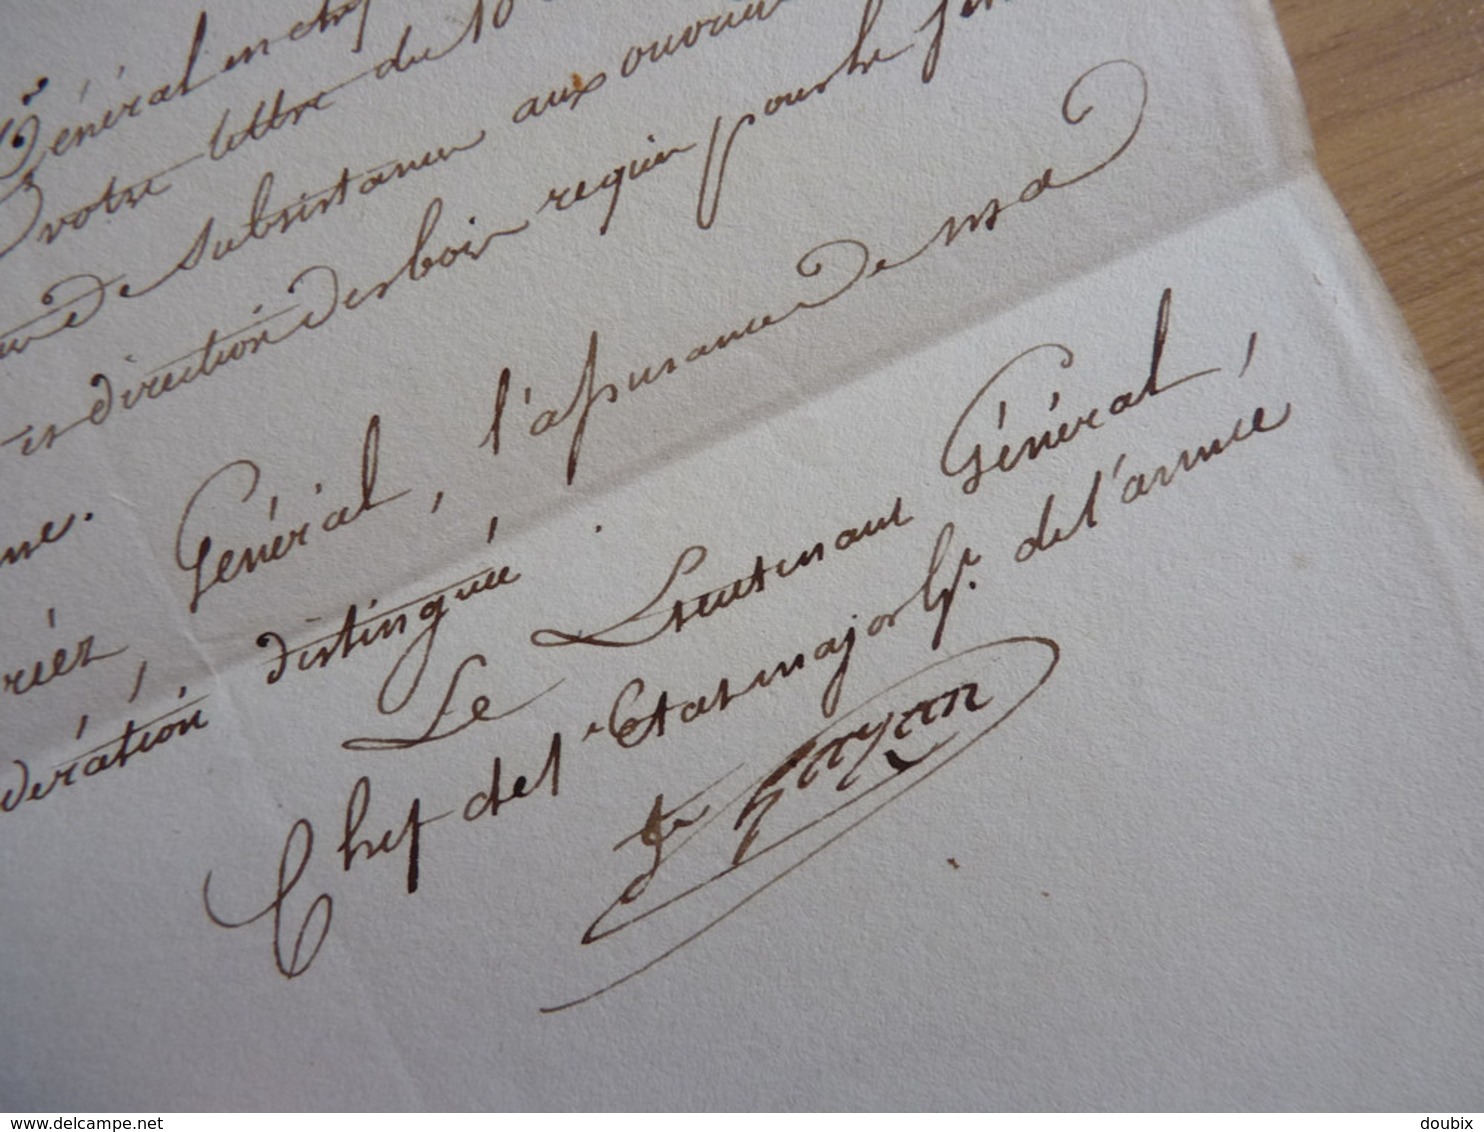 Général en chef
votre lettre du 10
de subsistance aux ouvriers
et direction des bois requis pour le
me.
Général, l'assurance de ma
dération distinguée.
Le Lieutenant Général,
Chef de l'Etat major Gl. de l'armée
delcampe.net
doubix